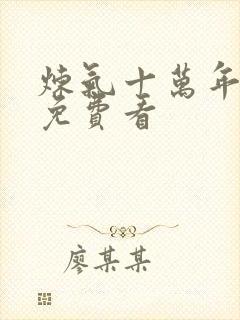 煉氣十萬年
免費看
廖某某